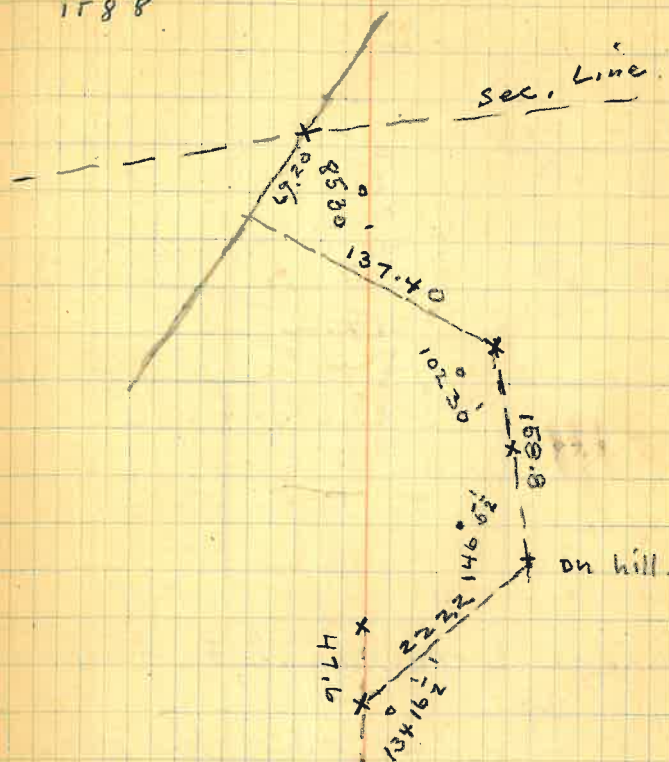 1588
Sec. Line
69.20
85° 30'
137.40
102° 30'
158.8
146° 5½'
on hill.
222.2
47.6
134° 16½'